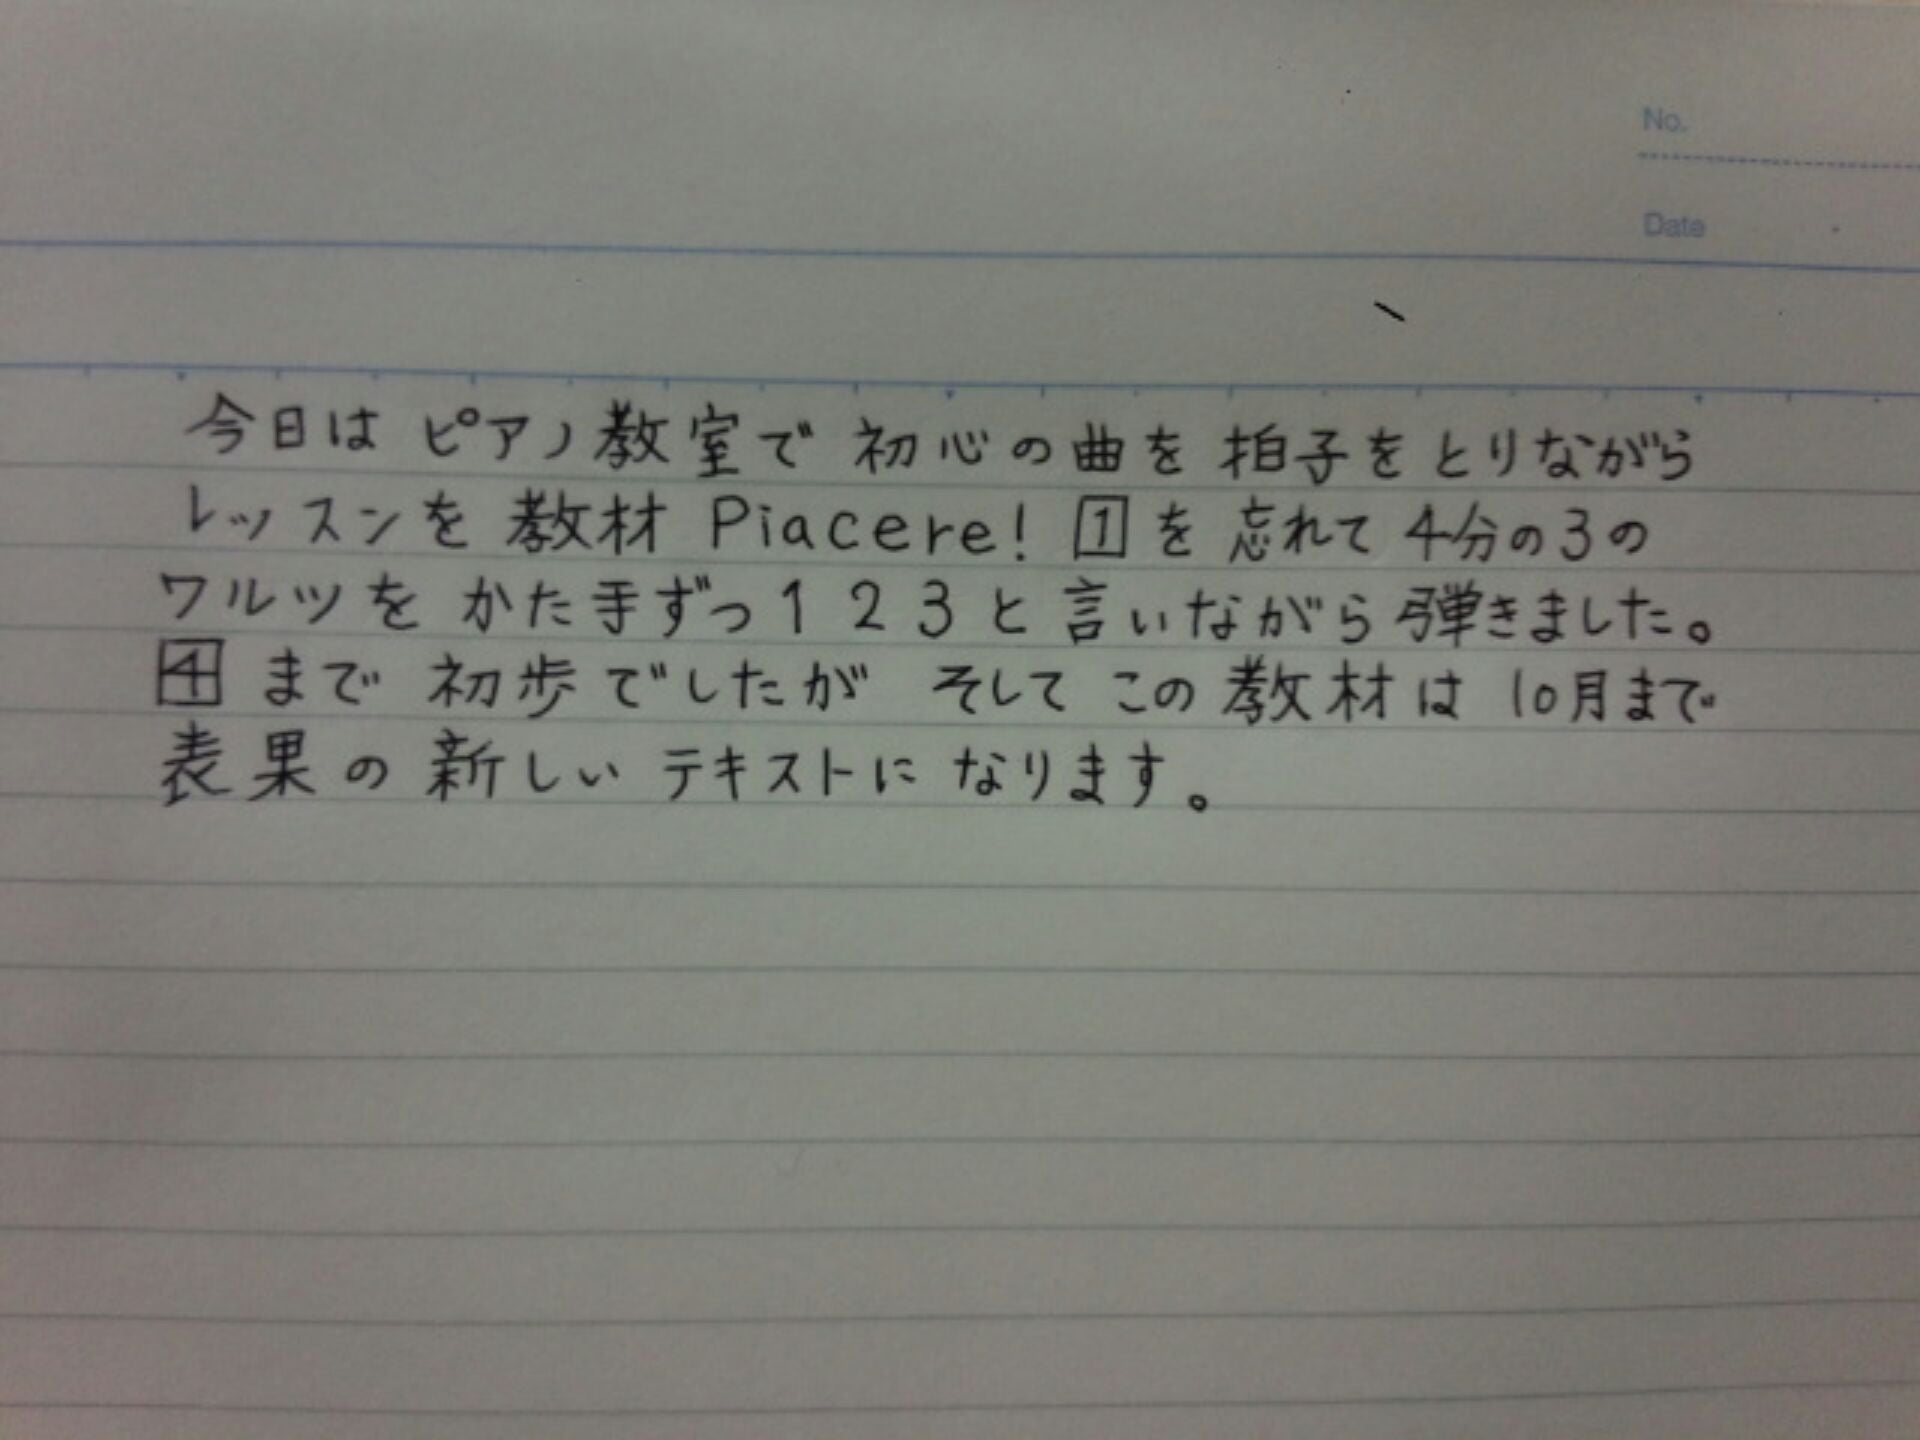 No.
Date
今日は ピアノ教室で 初心の曲を 拍子をとりながら
レッスンを 教材 Piacere! 1 を 忘れて 4分の3の
ワルツを かた手ずっ 1 2 3 と 言いながら 弾きました。
4 まで 初歩でしたが そして この 教材は 10月まで
表果の 新しい テキストに なります。